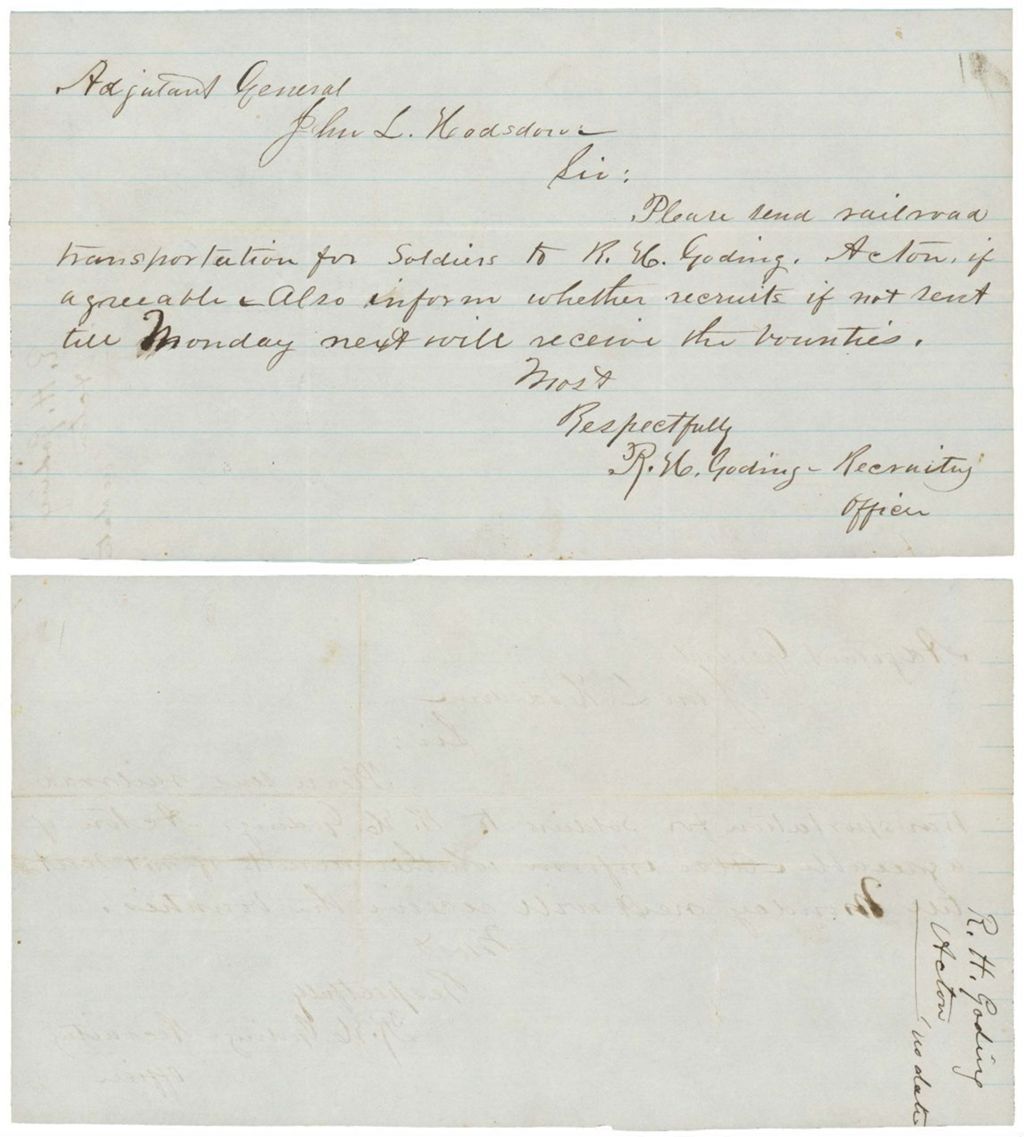 Adjutant General
John L. Hodsdon
Sir:
Please send railroad
transportation for Soldiers to R. H. Goding. Acton, if
agreeable - Also inform whether recruits if not sent
till Monday next will receive the bounties.
Most
Respectfully
R. H. Goding - Recruiting
Officer
R. H. Goding
Acton
no date